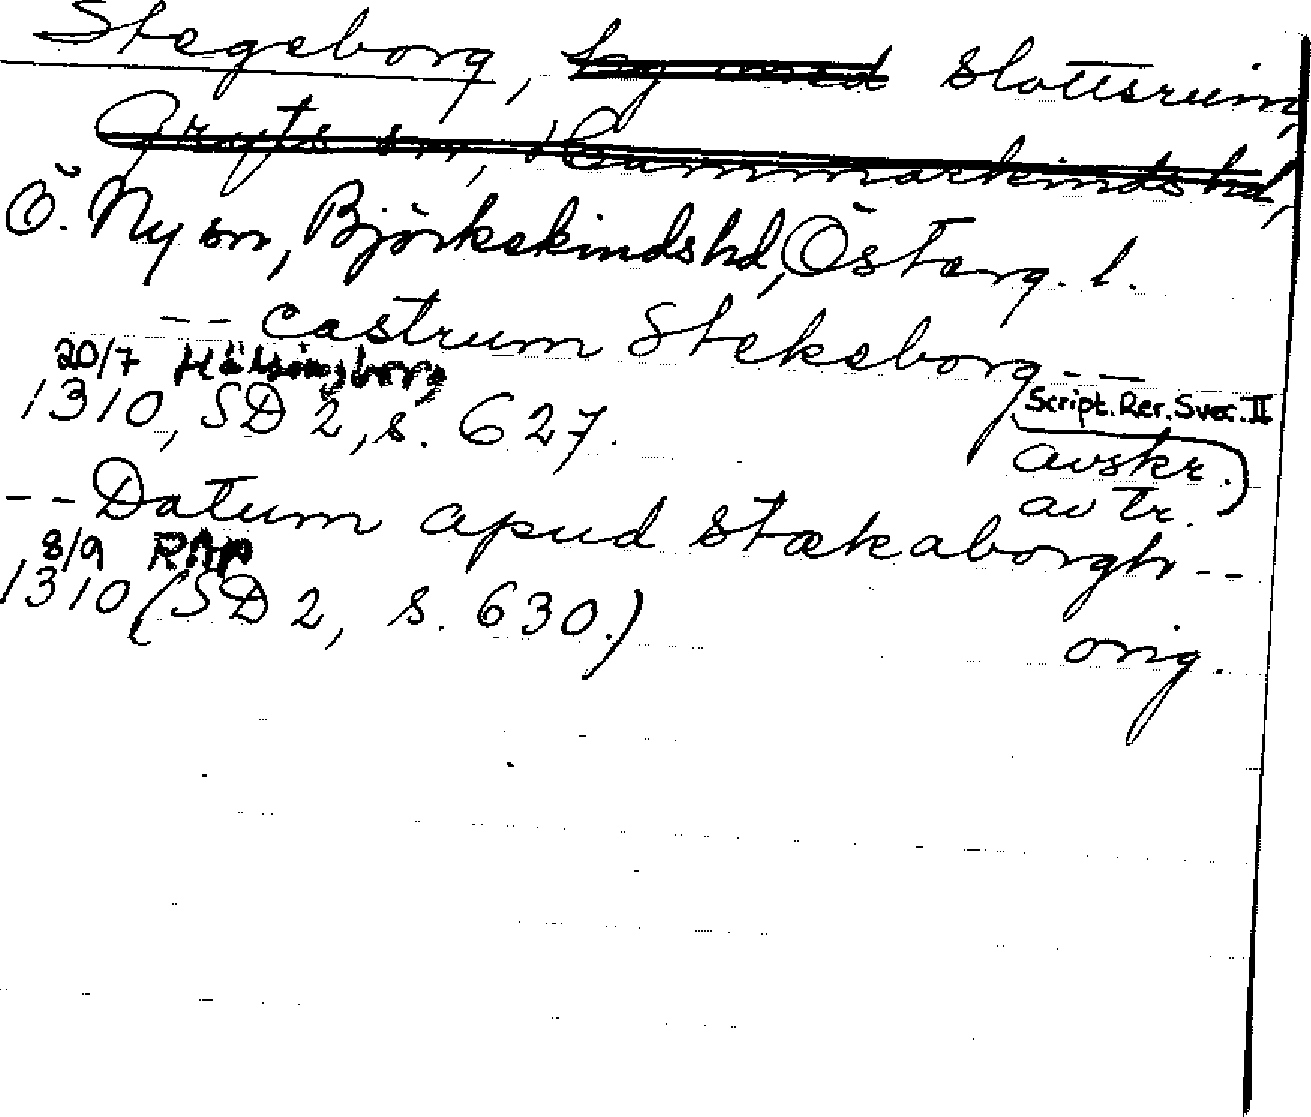 Stegeborg, slottsruin,
Gryts sn, Hammarkinds hd,
Ö. Ny sn, Björkekinds hd, Österg. l.
-- castrum Stekeborg --
20/7 Hälsingborg
1310, SD 2, s. 627.
Script. Rer. Svec. II
avskr.
av tr.)
-- Datum apud stækaborgh --
8/9 RAp
1310 (SD 2, s. 630.)
orig.